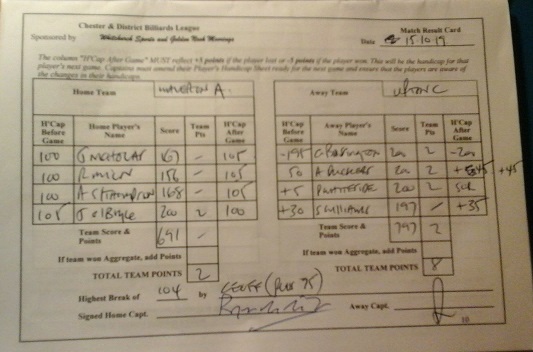 Chester & District Billiards League
Sponsored by Whitchurch Sports and Golden Nook Moorings
Match Result Card
Date 15.10.19
The column "H'Cap After Game" MUST reflect +5 points if the player lost or -5 points if the player won. This will be the handicap for
that player's next game. Captains must amend their Player's Handicap Sheet ready for the next game and ensure that the players are aware of
the changes in their handicaps.
Home Team WAVERTON A.
H'Cap Before Game Home Player's Name Score Team Pts H'Cap After Game
100 G NICHOLAS 167 - 105
100 156 - 105
100 A S THOMPSON 168 - 105
105 200 2 100
Team Score & Points 691 -
If team won Aggregate, add Points
TOTAL TEAM POINTS 2
Away Team
H'Cap Before Game Away Player's Name Score Team Pts H'Cap After Game
-195 200 2 -200
50 A 200 2 +45 +45
+5 P WHITESIDE 200 2 SCR
+30 S WILLIAMS 197 - +35
Team Score & Points 797 2
If team won Aggregate, add Points
TOTAL TEAM POINTS 8
Highest Break of 104 by GEOFF (PLUS 75)
Signed Home Capt. Away Capt.
10